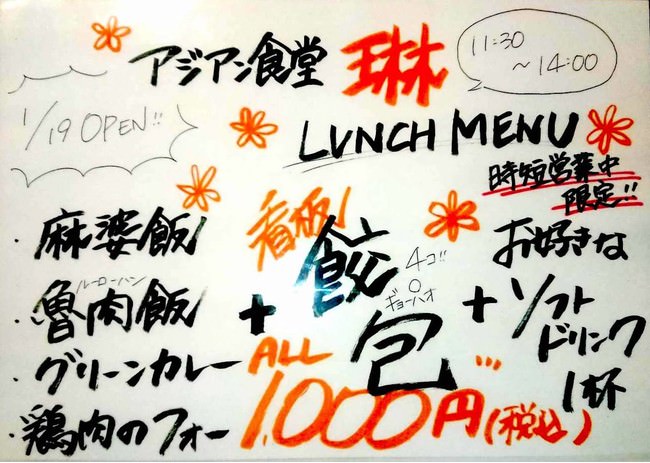 アジアン食堂 琳
11:30
～14:00
1/19 OPEN!!
LUNCH MENU
時短営業中
限定!!
・麻婆飯
・魯肉飯
ルーローハン
・グリーンカレー
・鶏肉のフォー
+
看板
餃包
4コ!!
ギョーパオ
+
お好きな
ソフト
ドリンク
1杯
ALL
1,000円(税込)